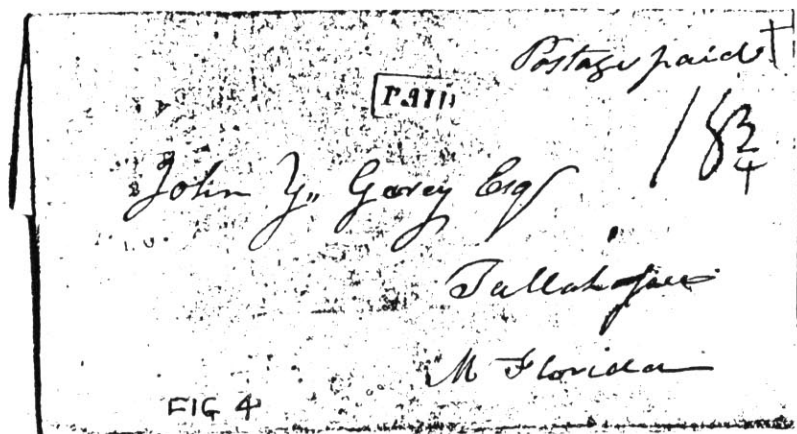 Postage paid
PAID
18 3/4
John Y. Garey Esq
Tallahassee
M Florida
FIG 4